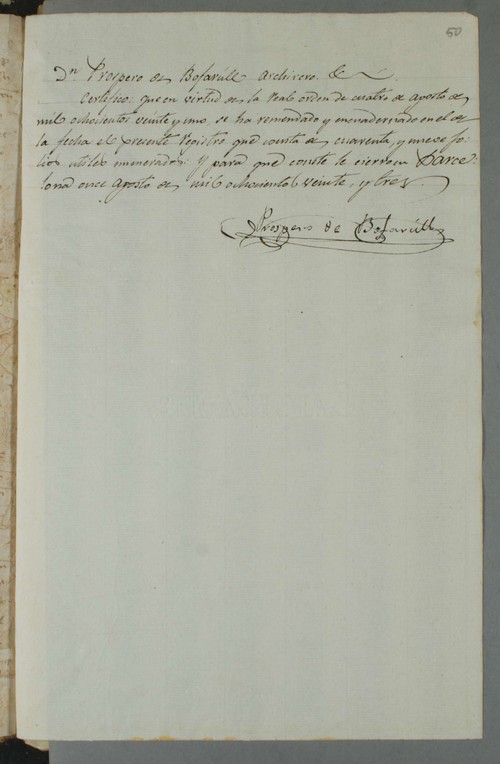 50
Dn. Prospero de Bofarúll Archivero. &
Certifico: que en virtud de la real orden de cuatro de agosto de
mil ochocientos veinte y uno se ha remendado y encuadernado en el de
la fecha el presente registro que consta de cuarenta, y nueve fo=
lios utiles numerados: Y para que conste le cierro en Barce=
lona once Agosto de mil ochocientos veinte, y tres.
Prospero de Bofarúll